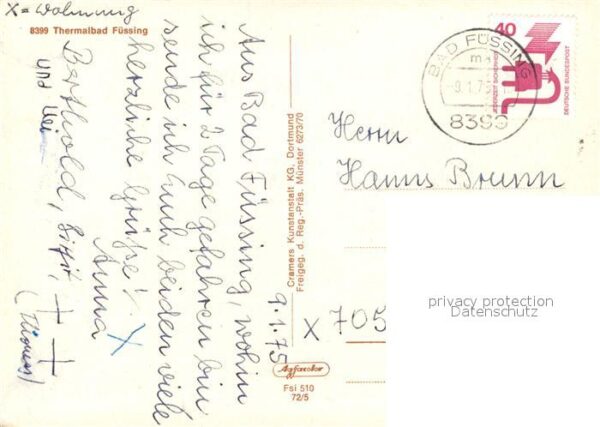 X = Wohnung
8399 Thermalbad Füssing
Aus Bad Füssing, wohin
ich für 2 Tage gefahren bin
sende ich Euch beiden viele
herzliche Grüße!
Anna X
Berthold,
und
(Thomas)
9.1.75
Cramers Kunstanstalt KG, Dortmund
Freigeg. d. Reg.-Präs. Münster 6273/70
Agfacolor
Fsi 510
72/5
40
JEDERZEIT SICHERHEIT
DEUTSCHE BUNDESPOST
BAD FÜSSING
9.1.75
8399
Herrn
Hanns Brunn
X 705
privacy protection
Datenschutz